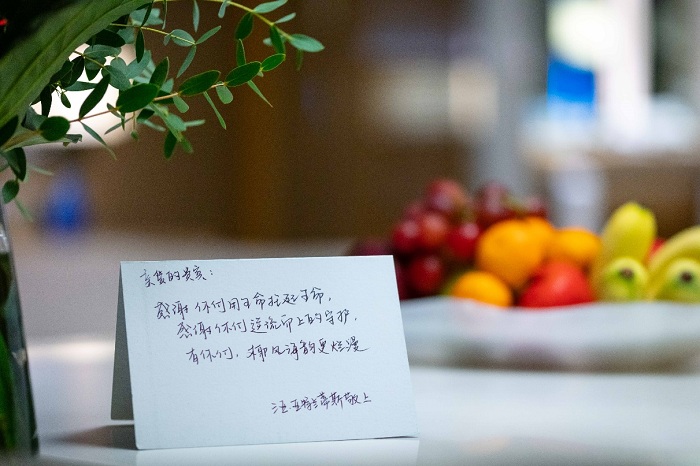 亲爱的贵宾:
感谢你们用生命托起生命,
感谢你们逆流而上的守护,
有你们,椰风海韵更烂漫
三亚·亚特兰蒂斯敬上